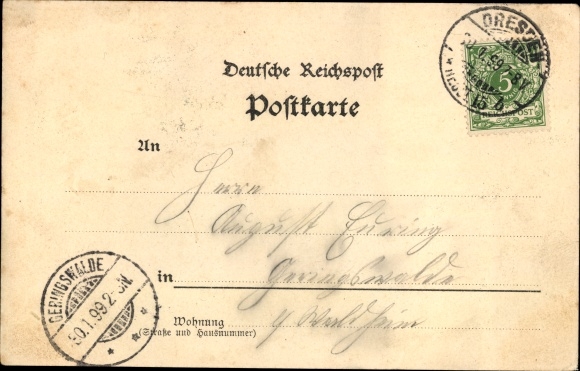 DRESDEN
5
REICHSPOST
Deutsche Reichspost
Postkarte
An
Herrn
August
Geringswalde
in
GERINGSWALDE
30.1.99.2-3N.
Wohnung
(Straße und Hausnummer)
Waldheim